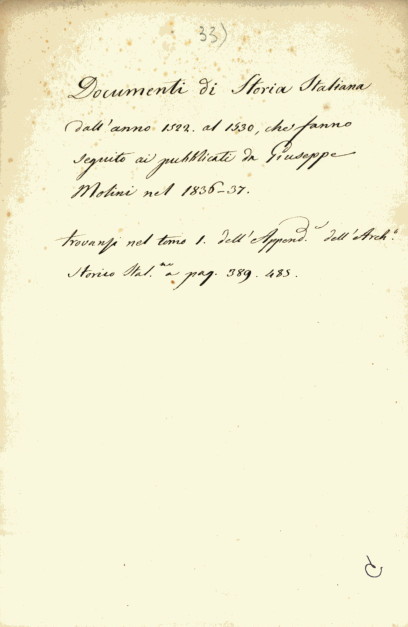 33)
Documenti di Storia Italiana
dall'anno 1522. al 1530, che fanno
seguito ai pubblicati da Giuseppe
Molini nel 1836-37.
trovansi nel tomo 1. dell'Append.e dell'Arch.o
Storico Ital.no a pag. 389. 485.